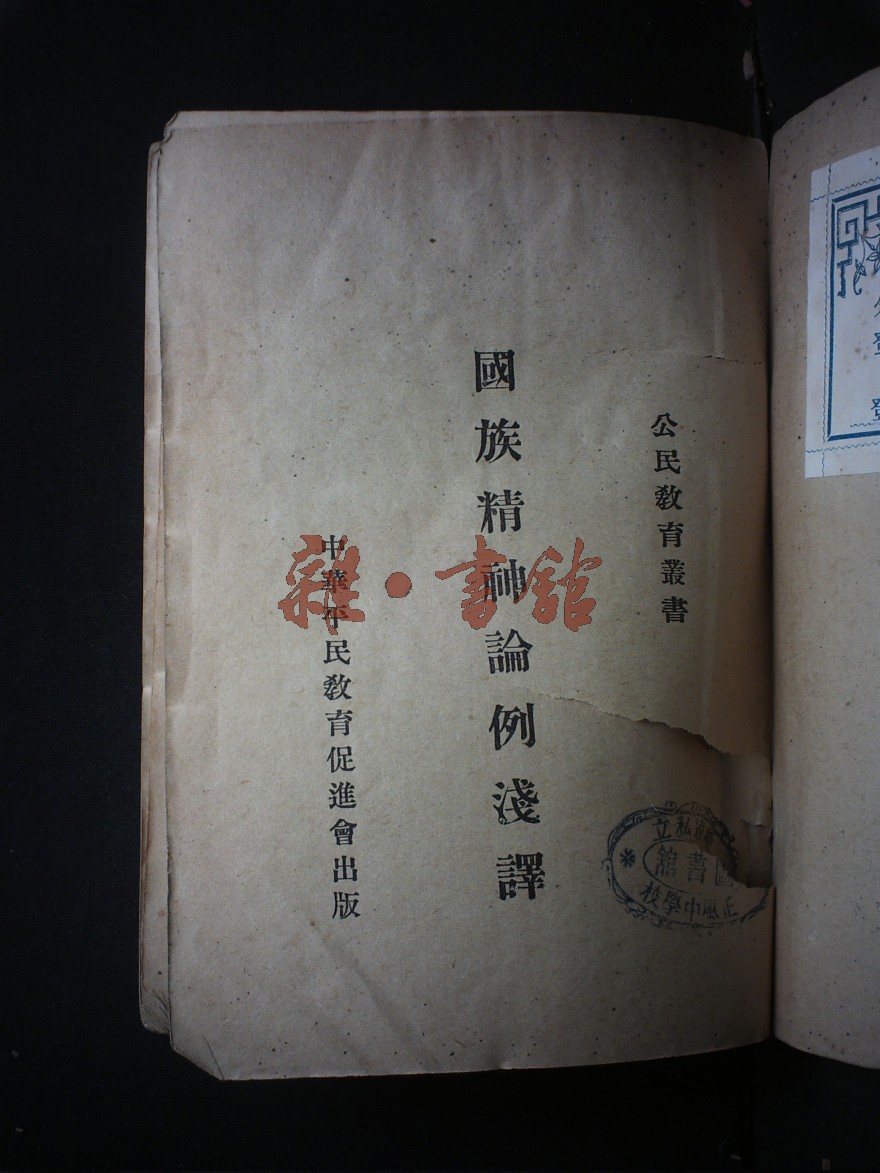 公民教育叢書
國族精神論例淺譯
中華平民教育促進會出版
雜·書館
私立
圖書館
中學校